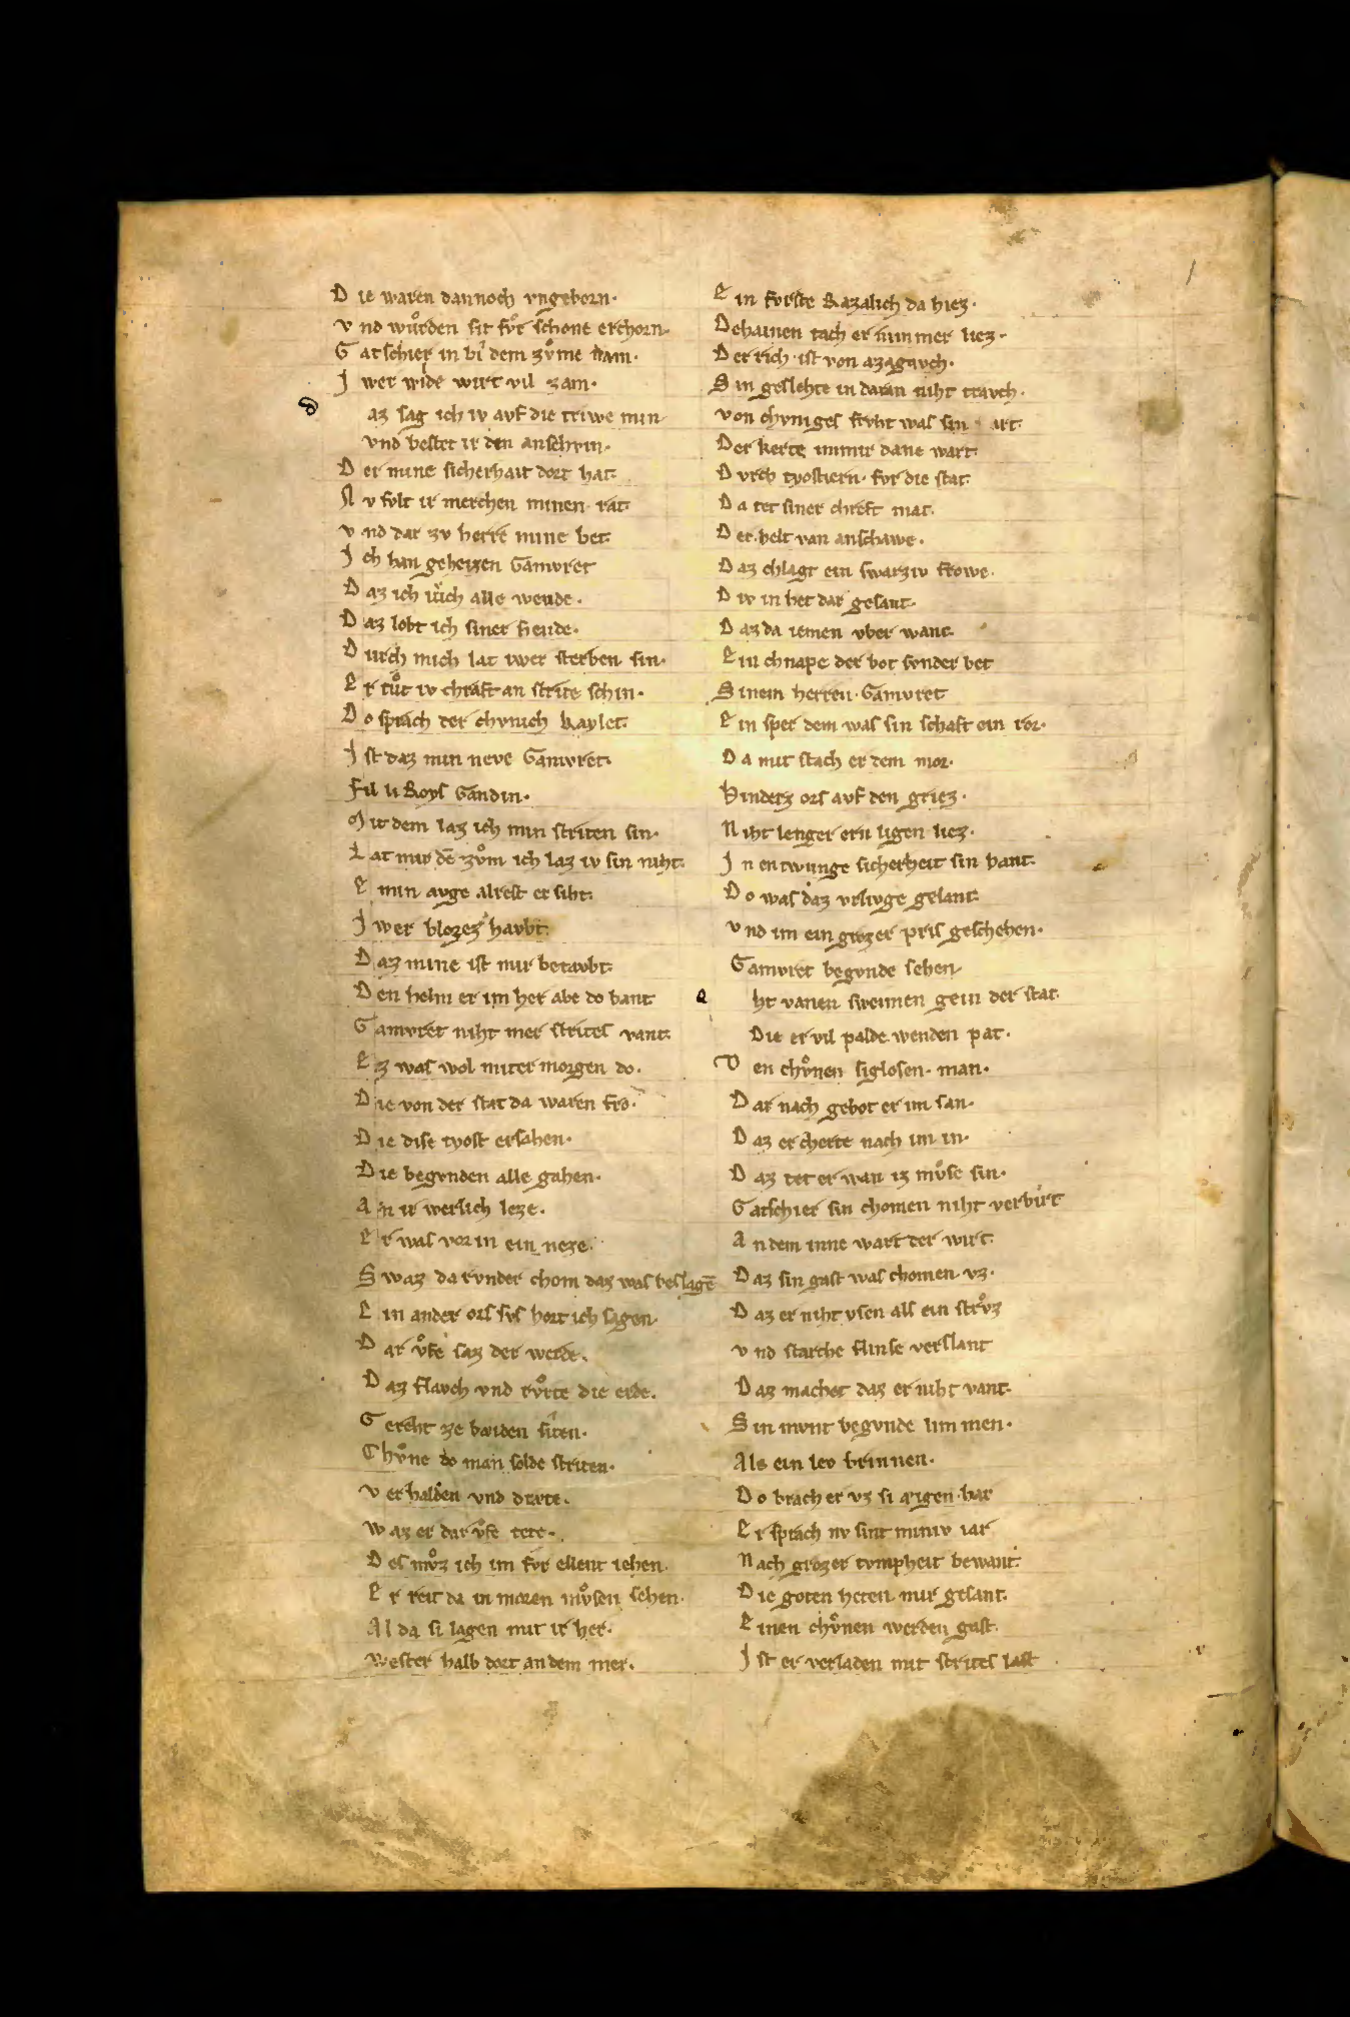 Die waren dannoch vngeborn·
vnd wuͦrden sit fvͦr schone erchorn·
Gatschier in bi dem zvͦme nam·
Jwer wilde wirt vil zam·
az sag ich iv avf die triwe min·
vnd bestet ir den anschvin·
Der mine sicherhait dort hat·
Nv svlt ir merchen minen rat·
vnd dar zv herre mine bet·
Jch han geheizen Gamvret
Daz ich iv̈ch alle wende·
Daz lobt ich siner hende·
Durch mich lat iwer sterben sin·
Er tuͦt iv chraft an strite schin·
Do sprach der chvnich kaylet·
Jst daz min neve Gamvret·
Fil li Roys Gandin·
Mit dem laz ich min striten sin·
Lat mir dē zvͦm ich laz iv sin niht·
E min avge alrest er siht·
Jwer blozez havbt·
Daz mine ist mir betavbt·
Den helm er im her abe do bant
Gamvret niht mer strites vant·
Ez was wol miter morgen do·
Die von der stat da waren fro·
Die dise tyost ersahen·
Die begvnden alle gahen·
An ir werlich leze·
Er was vor in ein neze·
Swaz da rvnder chom daz was beslagē
Ein ander ors svs hort ich sagen·
Dar vͦfe saz der werde·
Daz flavch vnd rvͦrte die erde·
Gereht ze baiden siten·
Chvͦne do man solde striten·
verhalden vnd dræte·
Waz er dar vͦfe tete·
Des mvͦz ich im fvr ellent iehen·
Er reit da in moren mvͦsen sehen·
Al da si lagen mit ir her·
Wester halb dort an dem mer·
Ein fvrste Razalich da hiez·
Dehainen tach er nimmer liez·
Der rich ist von azagavch·
Sin geslehte in daran niht travch·
von chvniges frvht was sin art·
Der kerte immir dane wart·
Dvrch tyostiern· fvr die stat·
Da tet siner chreft mat·
Der helt van anschawe·
Daz chlagt ein swarziv frowe·
Div in het dar gesant·
Daz da iemen vber want·
Ein chnape der bot svnder bet
Sinem herren· Gamvret
Ein sper dem was sin schaft ein ror·
Da mit stach er dem mor·
Hinderz ors avf den griez·
Niht lenger ern ligen liez·
Jn entwunge sicherheit sin hant·
Do was daz vrlivge gelant·
vnd im ein grozer pris geschehen·
Gamvret begvnde sehen·
ht vanen sweimen gein der stat·
Die er vil palde wenden pat·
Den chvͦnen siglosen· man·
Dar nach gebot er im san·
Daz er cherte nach im in·
Daz tet er wan iz mvͦse sin·
Gatschier sin chomen niht verbirt
An dem inne wart der wirt·
Daz sin gast was chomen· vz·
Daz er niht ysen als ein strvͦz
vnd starche flinse verslant
Daz machet daz er niht vant·
Sin mvnt begvnde limmen·
Als ein lev brinnen·
Do brach er vz si aigen har
Er sprach nv sint miniv iar
Nach grozer tvmpheit bewant·
Die goten heten mir gesant·
Einen chvͦnen werden gast·
Jst er verladen mit strites last